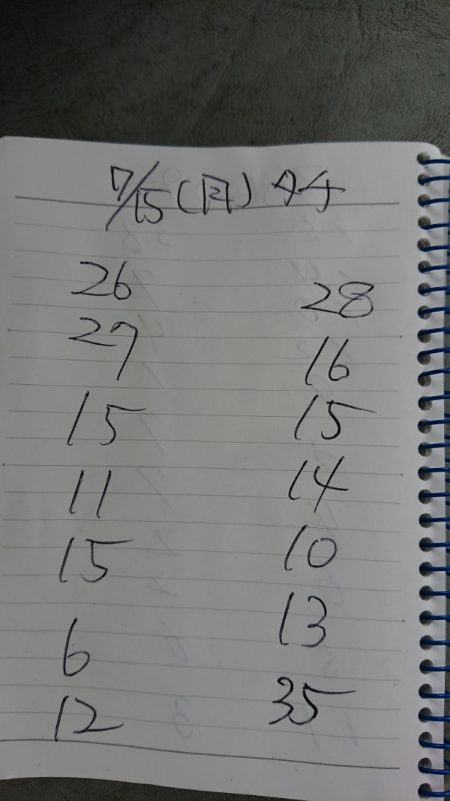 7/15(月)タチ
26 28
27 16
15 15
11 14
15 10
6 13
12 35